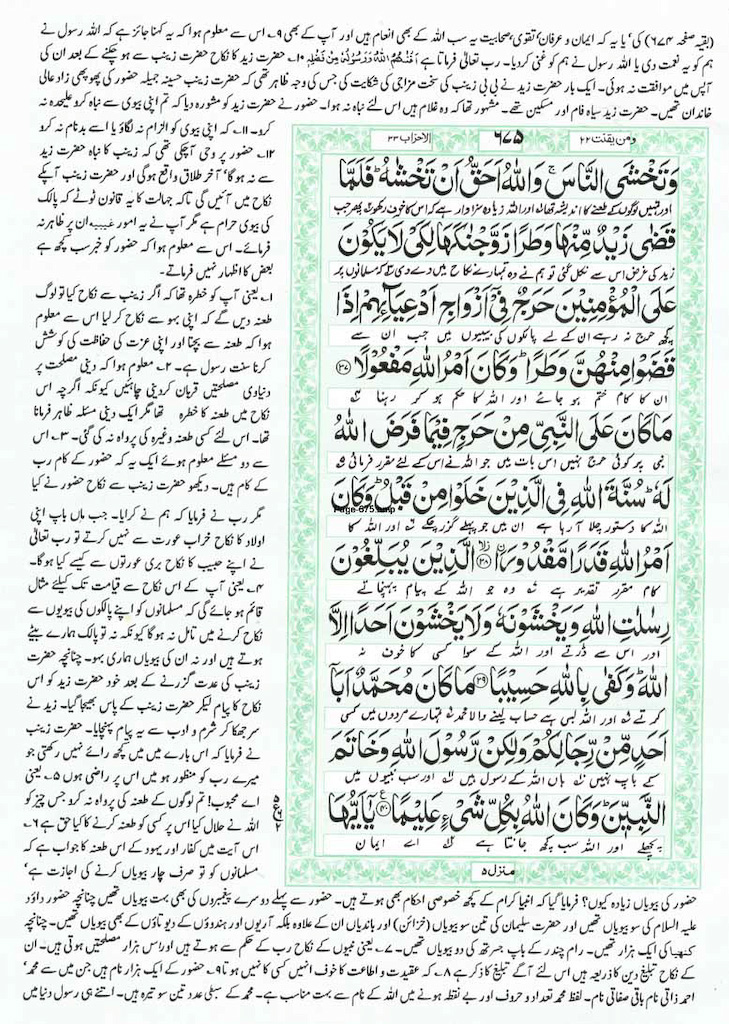 (بقیہ صفحہ ۶۷۴) کی، یا یہ کہ ایمان و عرفان، تقویٰ، صحابیت یہ سب اللہ کے بھی انعام ہیں اور آپ کے بھی ۹۔ اس سے معلوم ہوا کہ یہ کہنا جائز ہے کہ اللہ رسول نے
ہم کو یہ نعمت دی یا اللہ رسول نے ہم کو غنی کردیا۔ رب تعالیٰ فرماتا ہے اَغْنٰهُمُ اللّٰهُ وَرَسُوْلُهٗ مِنْ فَضْلِهٖ ۱۰۔ حضرت زید کا نکاح حضرت زینب سے ہو چکنے کے بعد ان کی
آپس میں موافقت نہ ہوئی۔ ایک بار حضرت زید نے بی بی زینب کی سخت مزاجی کی شکایت کی جس کی وجہ ظاہر تھی کہ حضرت زینب حسینہ جمیلہ حضور کی پھوپھی زاد عالی
خاندان تھیں۔ حضرت زید سیاہ فام اور مسکین تھے۔ مشہور تھا کہ وہ غلام ہیں اس لئے نباہ نہ ہوا۔ حضور نے حضرت زید کو مشورہ دیا کہ تم اپنی بیوی سے نباہ کرو علیحدہ نہ
کرو۔ ۱۱۔ کہ اپنی بیوی کو الزام نہ لگاؤ یا اسے بدنام نہ کرو
۱۲۔ حضور پر وحی آچکی تھی کہ زینب کا نباہ حضرت زید
سے نہ ہوگا، آخر طلاق واقع ہوگی اور حضرت زینب آپکے
نکاح میں آئیں گی تاکہ جہالت کا یہ قانون ٹوٹے کہ پالک
کی بیوی حرام ہے مگر آپ نے یہ امور غیبیہ ان پر ظاہر نہ
فرمائے۔ اس سے معلوم ہوا کہ حضور کو خبر سب کچھ ہے
بعض کا اظہار نہیں فرماتے۔
۱۔ یعنی آپ کو خطرہ تھا کہ اگر زینب سے نکاح کیا تو لوگ
طعنہ دیں گے کہ اپنی بہو سے نکاح کر لیا اس سے معلوم
ہوا کہ طعنہ سے بچنا اور اپنی عزت کی حفاظت کی کوشش
کرنا سنت رسول ہے۔ ۲۔ معلوم ہوا کہ دینی مصلحت پر
دنیاوی مصلحتیں قربان کردینی چاہئیں کیونکہ اگرچہ اس
نکاح میں طعنہ کا خطرہ تھا مگر ایک دینی مسئلہ ظاہر فرمانا
تھا۔ اس لئے کسی طعنہ وغیرہ کی پرواہ نہ کی گئی۔ ۳۔ اس
سے دو مسئلے معلوم ہوئے ایک یہ کہ حضور کے کام رب
کے کام ہیں۔ دیکھو حضرت زینب سے نکاح حضور نے کیا
مگر رب نے فرمایا کہ ہم نے کرایا۔ جب ماں باپ اپنی
اولاد کا نکاح خراب عورت سے نہیں کرتے تو رب تعالیٰ
نے اپنے حبیب کا نکاح بری عورتوں سے کیسے کیا ہوگا۔
۴۔ یعنی آپ کے اس نکاح سے قیامت تک کیلئے مثال
قائم ہو جائے گی کہ مسلمانوں کو اپنے پالکوں کی بیویوں سے
نکاح کرنے میں تامل نہ ہوگا کیونکہ نہ تو پالک ہمارے بیٹے
ہوتے ہیں اور نہ ان کی بیویاں ہماری بہو۔ چنانچہ حضرت
زینب کی عدت گزرنے کے بعد خود حضرت زید کو اس
نکاح کا پیام لیکر حضرت زینب کے پاس بھیجا گیا۔ زید نے
سر جھکا کر شرم و ادب سے یہ پیام پہنچایا۔ حضرت زینب
نے فرمایا کہ اس بارے میں میں کچھ رائے نہیں رکھتی جو
میرے رب کو منظور ہو میں اس پر راضی ہوں ۵۔ یعنی
اے محبوب! تم لوگوں کے طعنہ کی پرواہ نہ کرو جس چیز کو
اللہ نے حلال کیا اس پر کسی کو طعنہ کرنے کا کیا حق ہے ۶۔
اس آیت میں کفار اور یہود کے اس طعنہ کا جواب ہے کہ
مسلمانوں کو تو صرف چار بیویاں کرنے کی اجازت ہے،
ومن یقنت ۲۲
۶۷۵
الاحزاب ۳۳
وَتَخْشَى النَّاسَ ۚ وَاللّٰهُ اَحَقُّ اَنْ تَخْشٰىهُ ؕ فَلَمَّا
اور تمہیں لوگوں کے طعنے کا اندیشہ تھا اور اللہ زیادہ سزاوار ہے کہ اس کا خوف رکھو پھر جب
قَضٰى زَيْدٌ مِّنْهَا وَطَرًا زَوَّجْنٰكَهَا لِكَىْ لَا يَكُوْنَ
زید کی غرض اس سے نکل گئی تو ہم نے وہ تمہارے نکاح میں دے دی کہ مسلمانوں پر
عَلَى الْمُؤْمِنِيْنَ حَرَجٌ فِىْۤ اَزْوَاجِ اَدْعِيَآئِهِمْ اِذَا
کچھ حرج نہ رہے ان کے لے پالکوں کی بیبیوں میں جب ان سے
قَضَوْا مِنْهُنَّ وَطَرًا ؕ وَكَانَ اَمْرُ اللّٰهِ مَفْعُوْلًا ۝۳۷
ان کا کام ختم ہو جائے اور اللہ کا حکم ہو کر رہنا
مَا كَانَ عَلَى النَّبِىِّ مِنْ حَرَجٍ فِيْمَا فَرَضَ اللّٰهُ
نبی پر کوئی حرج نہیں اس بات میں جو اللہ نے اس کے لئے مقرر فرمائی
لَهٗ ؕ سُنَّةَ اللّٰهِ فِى الَّذِيْنَ خَلَوْا مِنْ قَبْلُ ؕ وَكَانَ
Page-675.bmp
اللہ کا دستور چلا آ رہا ہے ان میں جو پہلے گزر چکے اور اللہ کا
اَمْرُ اللّٰهِ قَدَرًا مَّقْدُوْرَا ۝۳۸ الَّذِيْنَ يُبَلِّغُوْنَ
کام مقرر تقدیر ہے وہ جو اللہ کے پیام پہنچاتے
رِسٰلٰتِ اللّٰهِ وَيَخْشَوْنَهٗ وَلَا يَخْشَوْنَ اَحَدًا اِلَّا
اور اس سے ڈرتے اور اللہ کے سوا کسی کا خوف نہ
اللّٰهَ ؕ وَكَفٰى بِاللّٰهِ حَسِيْبًا ۝۳۹ مَا كَانَ مُحَمَّدٌ اَبَآ
کرتے اور اللہ بس ہے حساب لینے والا محمد تمہارے مردوں میں کسی
اَحَدٍ مِّنْ رِّجَالِكُمْ وَلٰكِنْ رَّسُوْلَ اللّٰهِ وَخَاتَمَ
کے باپ نہیں ہاں اللہ کے رسول ہیں اور سب نبیوں میں
النَّبِيّٖنَ ؕ وَكَانَ اللّٰهُ بِكُلِّ شَىْءٍ عَلِيْمًا ۝۴۰ يٰۤاَيُّهَا
پچھلے اور اللہ سب کچھ جانتا ہے اے ایمان
منزل ۵
حضور کی بیویاں زیادہ کیوں؟ فرمایا گیا کہ انبیا کرام کے کچھ خصوصی احکام بھی ہوتے ہیں۔ حضور سے پہلے دوسرے پیغمبروں کی بھی بہت بیویاں تھیں چنانچہ حضور داؤد
علیہ السلام کی سو بیویاں تھیں اور حضرت سلیمان کی تین سو بیویاں (خزائن) اور باندیاں ان کے علاوہ بلکہ آریوں اور ہندوؤں کے دیوتاؤں کے بھی بیویاں تھیں۔ چنانچہ
کنھیا کی ایک ہزار تھیں۔ رام چندر کے باپ جسرتھ کی دو بیویاں تھیں۔ ۷۔ یعنی نبیوں کے نکاح رب کے حکم سے ہوتے ہیں اور اس ہزار مصلحتیں ہوتی ہیں۔ ان
کے نکاح تبلیغ دین کا ذریعہ ہیں اس لئے آگے تبلیغ کا ذکر ہے ۸۔ کہ عقیدت و اطاعت کا خوف انہیں کسی کا نہیں ہوتا ۹۔ حضور کے ایک ہزار نام ہیں جن میں سے محمد،
احمد ذاتی نام باقی صفاتی نام۔ لفظ محمد تعداد و حروف اور بے نقطہ ہونے میں اللہ کے نام سے بہت مناسب ہے۔ محمد کے سبطی عدد تین سو تیرہ ہیں۔ اتنے ہی رسول دنیا میں